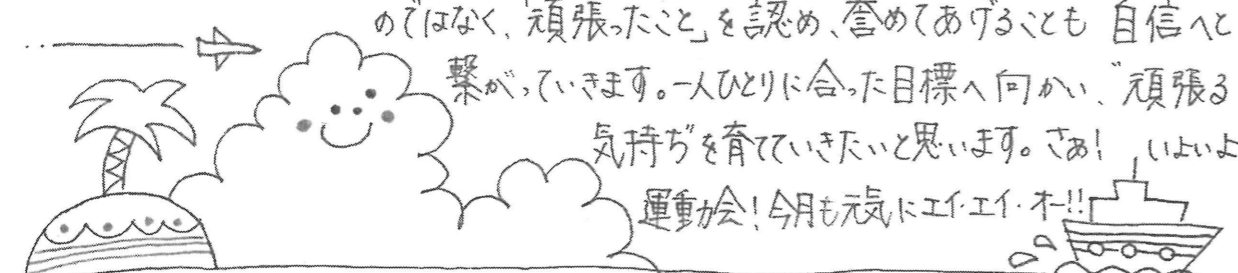 のではなく、「頑張ったこと」を認め、誉めてあげることも 自信へと
繋がっていきます。一人ひとりに合った目標へ向かい、〝頑張る
気持ち〟を育てていきたいと思います。さぁ! いよいよ
運動会!今月も元気にエイ・エイ・オー!!